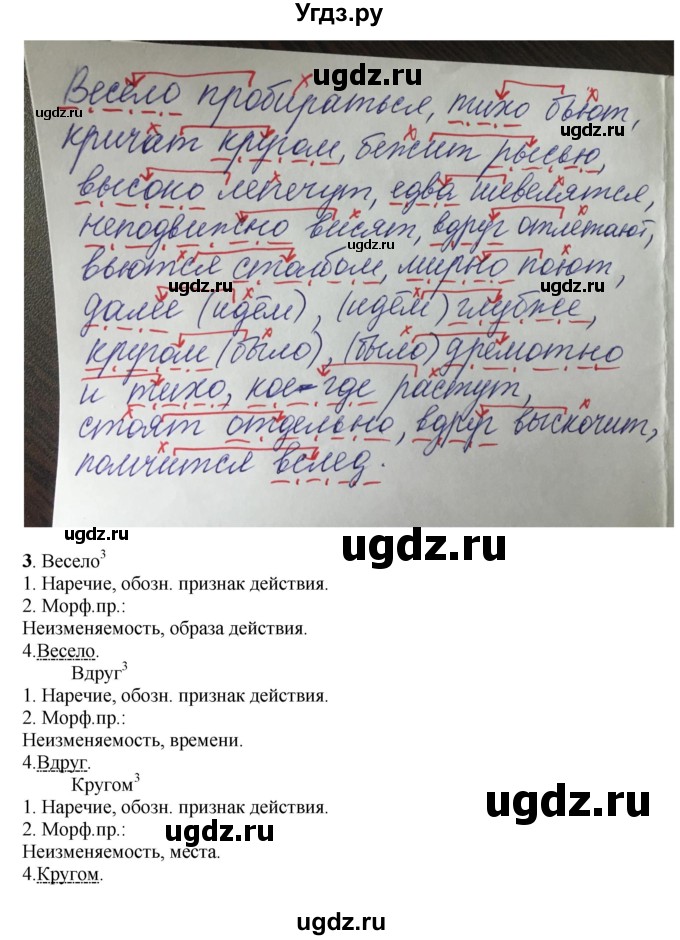 Угдз.ру
ugdz.ru
Весело пробираться, тихо бьют,
ugdz.ru
ugdz.ru
кричат кругом, бежит рысью,
ugdz.ru
высоко лепечут, едва шевелятся,
неподвижно висят, вдруг отлетают,
ugdz.ru
вьются столбом, мирно поют,
далее (идём), (идём) глубже,
ugdz.ru
кругом (было), (было) дремотно
и тихо, кое-где растут,
стоят отдельно, вдруг выскочит,
помчится вслед.
ugdz.ru
ugdz.ru
3. Весело³
1. Наречие, обозн. признак действия.
ugdz.ru
2. Морф.пр.:
Неизменяемость, образа действия.
4.Весело.
ugdz.ru
Вдруг³
1. Наречие, обозн. признак действия.
2. Морф.пр.:
Неизменяемость, времени.
4.Вдруг.
Кругом³
ugdz.ru
1. Наречие, обозн. признак действия.
2. Морф.пр.:
ugdz.ru
Неизменяемость, места.
4.Кругом.
ugdz.ru